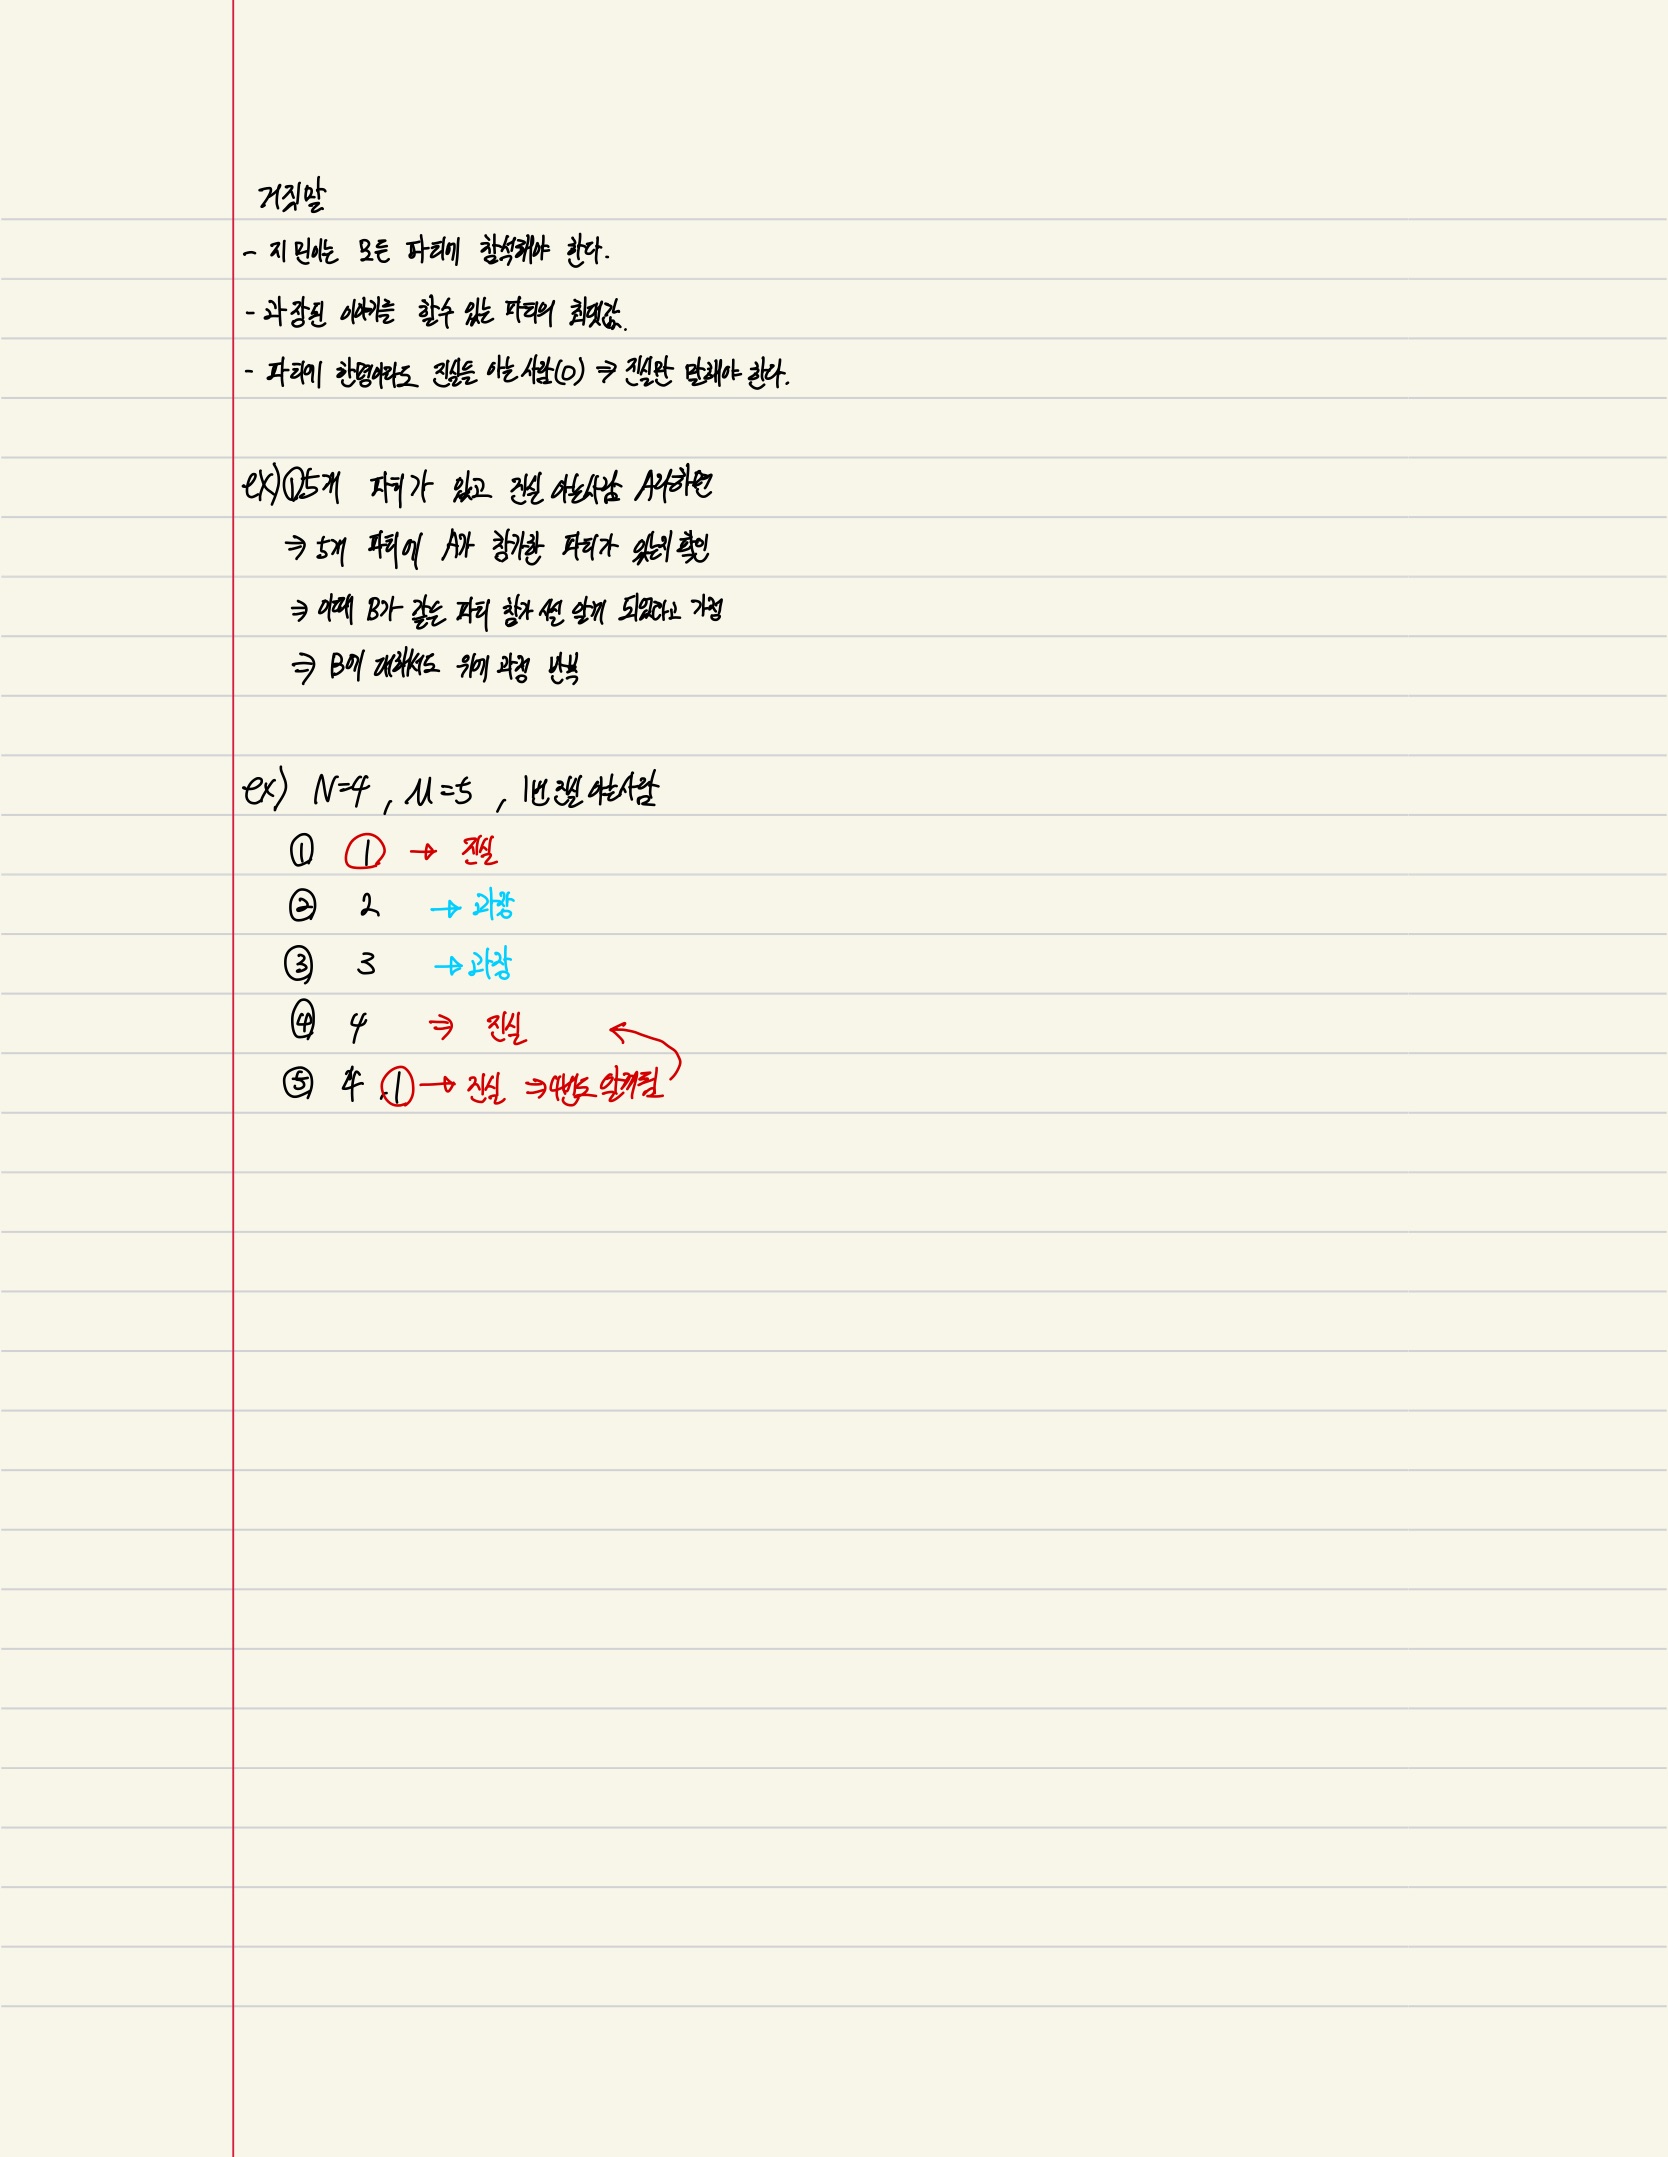 거짓말
- 지민이는 모든 파티에 참석해야 한다.
- 과장된 이야기를 할수 있는 파티의 최댓값.
- 파티에 한명이라도 진실을 아는 사람(O) ⇒ 진실만 말해야 한다.
ex) ① 5개 파티가 있고 진실 아는사람 A라하면
⇒ 5개 파티에 A가 참가한 파티가 있는지 확인
⇒ 이때 B가 같은 파티 참가 알게 되었다고 가정
⇒ B에 대해서도 위에 과정 반복
ex) N=4, M=5, 1번 진실 아는사람
① 1 → 진실
② 2 → 과장
③ 3 → 과장
④ 4 ⇒ 진실
⑤ 4, 1 → 진실 ⇒ 4번도 알게됨